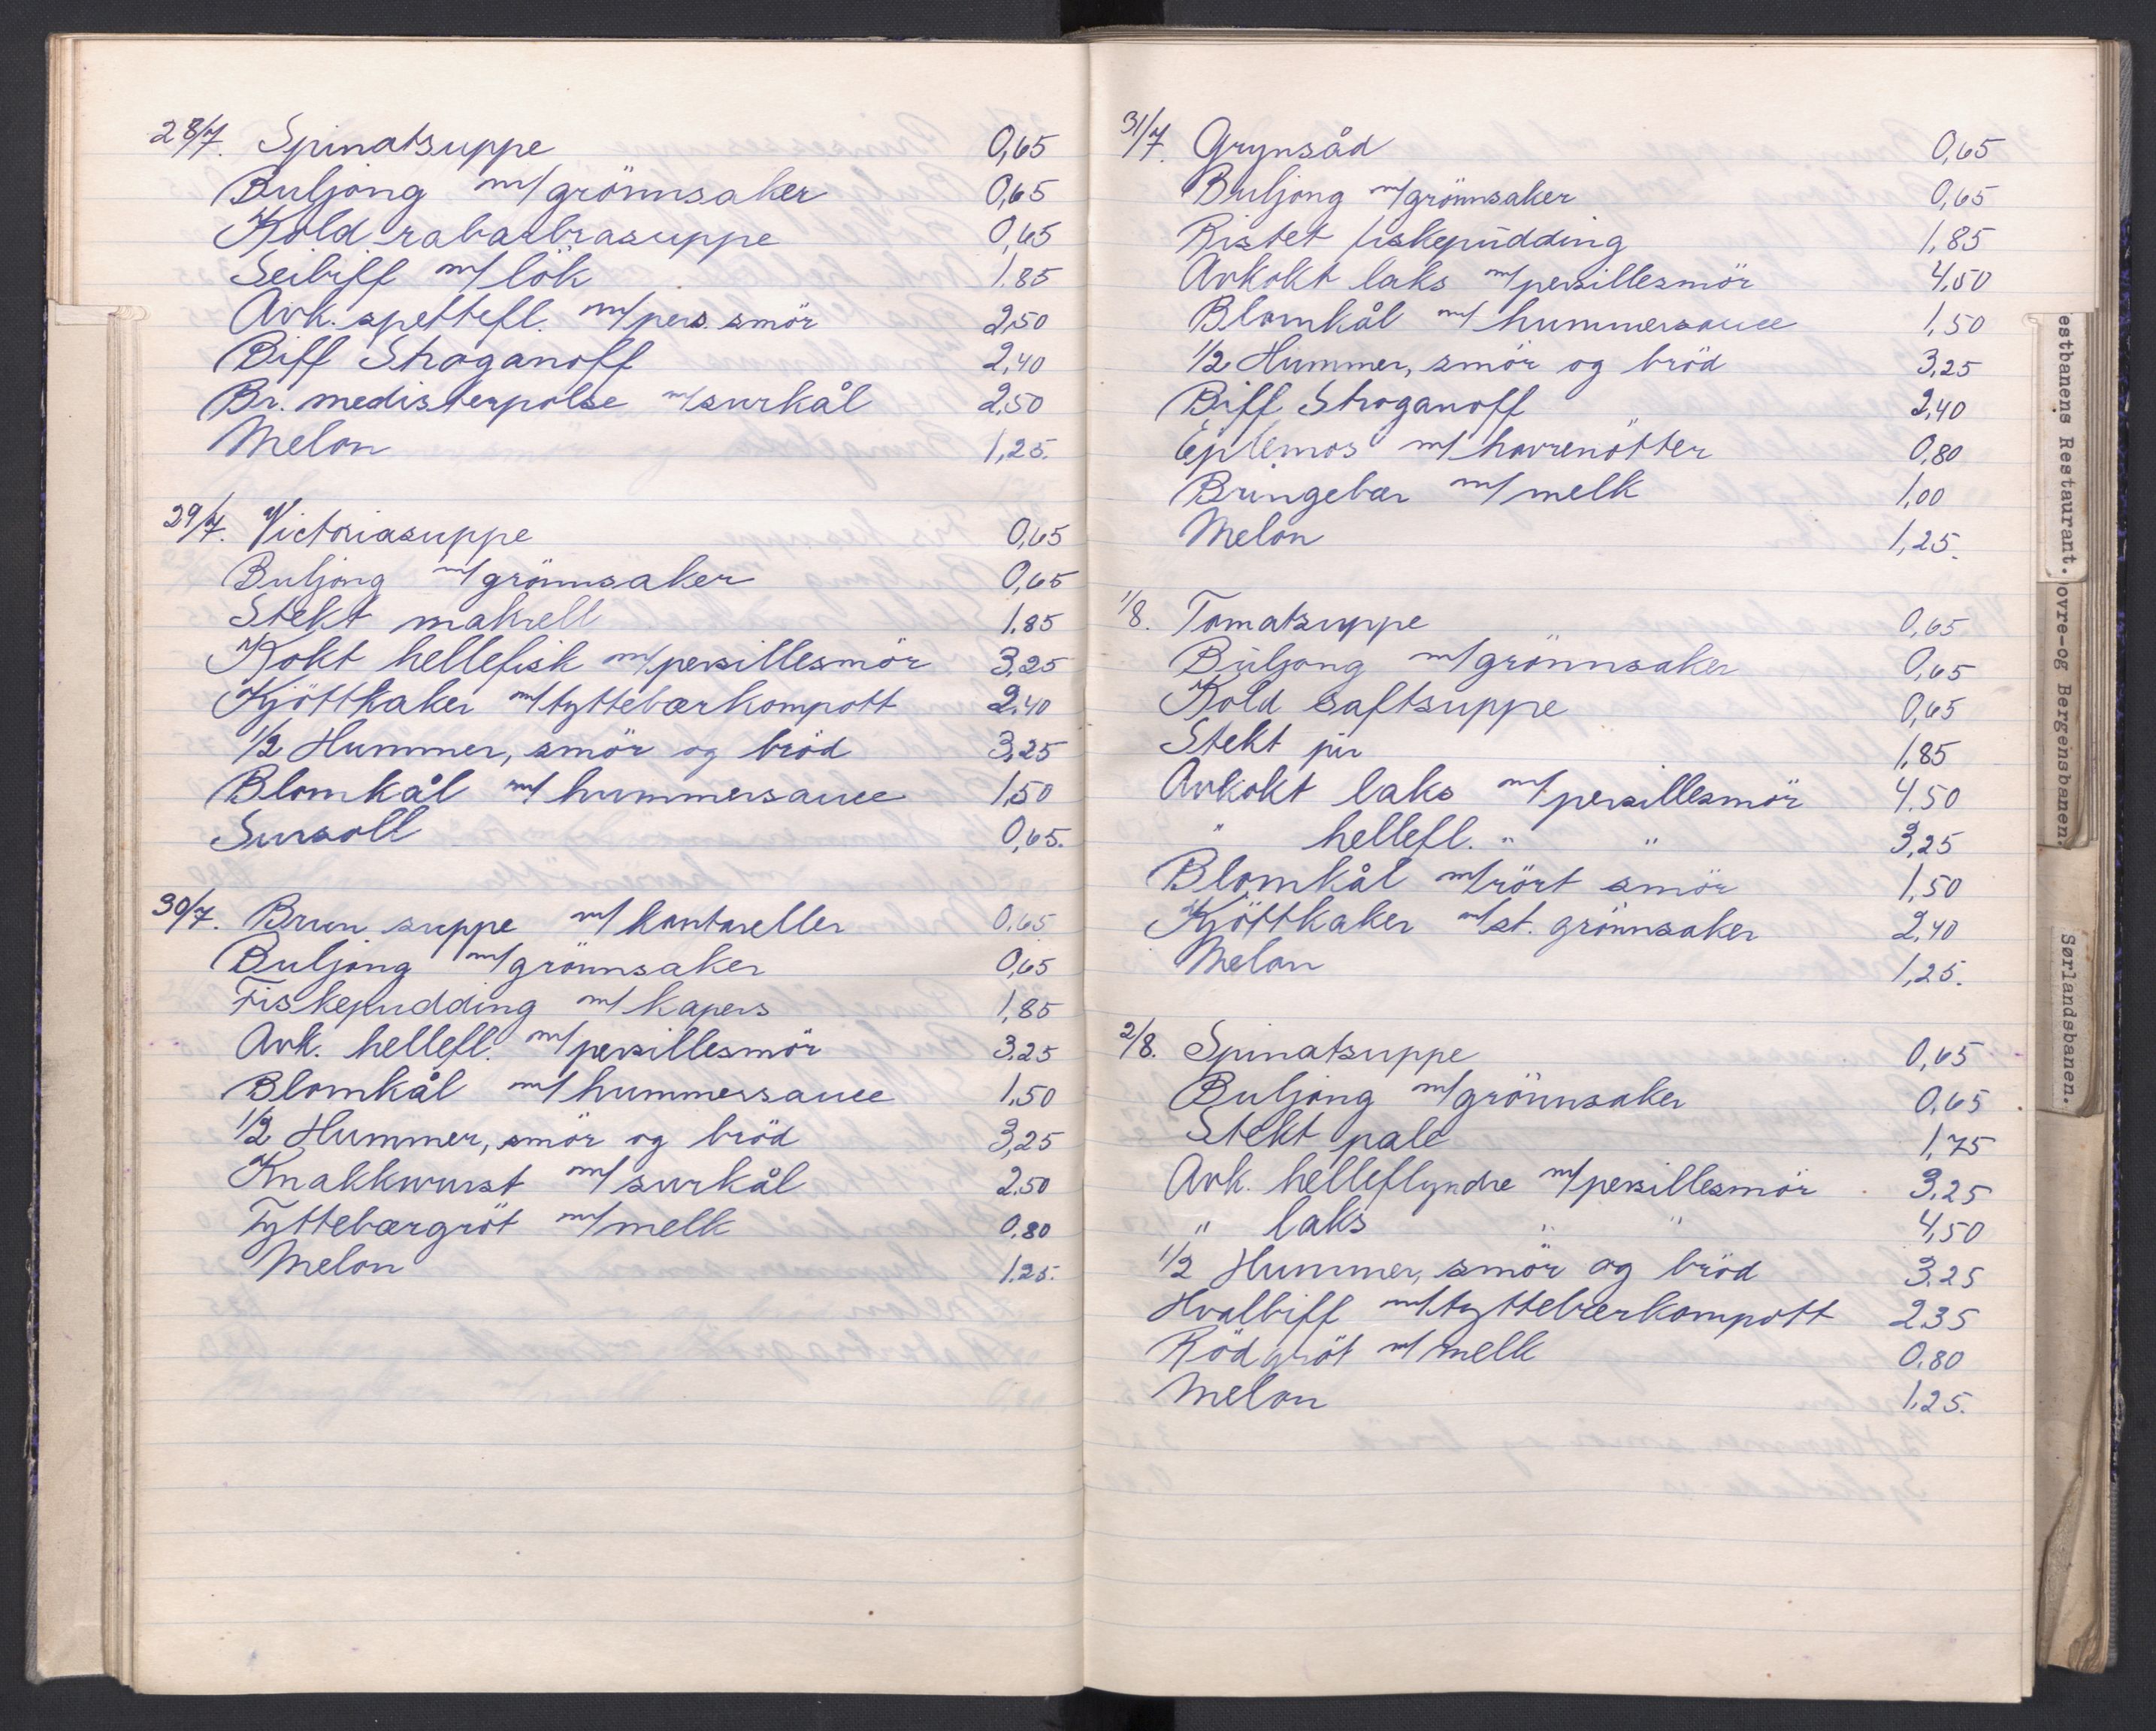 28/7. Spinatsuppe 0,65
Buljong m/grönnsaker 0,65
Kold rabarbrasuppe 0,65
Seibiff m/lök 1.85
Avk. spettefl. m/pers. smör 2,50
Biff Stroganoff 2,40
Br. medisterpölse m/surkål 2,50
Melon 1,25.
29/7. Victoriasuppe 0,65
Buljong m/grönnsaker 0,65
Stekt makrell 1.85
Kokt hellefisk m/persillesmör 3,25
Kjöttkaker m/tyttebærkompott 2,40
1/2 Hummer, smör og bröd 3,25
Blomkål m/hummersauce 1,50
Sursoll 0,65.
30/7. Brun suppe m/kantareller 0,65
Buljong m/grönnsaker 0,65
Fiskepudding m/kapers 1,85
Avk. hellefl. m/persillesmör 3,25
Blomkål m/hummersauce 1,50
1/2 Hummer, smör og bröd 3,25
Knakkwurst m/surkål 2,50
Tyttebærgröt m/melk 0,80
Melon 1,25.
31/7. Grynsåd 0,65
Buljong m/grönnsaker 0,65
Ristet fiskepudding 1,85
Avkokt laks m/persillesmör 4,50
Blomkål m/hummersauce 1,50
1/2 Hummer, smör og bröd 3,25
Biff Stroganoff 2,40
Eplemos m/havrenötter 0,80
Bringebær m/melk 1,00
Melon 1,25.
1/8. Tomatsuppe 0,65
Buljong m/grönnsaker 0,65
Kold saftsuppe 0,65
Stekt pir 1,85
Avkokt laks m/persillesmör 4,50
" hellefl. " " 3,25
Blomkål m/rört smör 1,50
Kjöttkaker m/st. grönnsaker 2,40
Melon 1,25.
2/8. Spinatsuppe 0,65
Buljong m/grönnsaker 0,65
Stekt pale 1,75
Avk. helleflyndre m/persillesmör 3,25
" laks " " 4,50
1/2 Hummer, smör og bröd 3,25
Hvalbiff m/tyttebærkompott 2,35
Rödgröt m/melk 0,80
Melon 1,25.
estbanens Restaurant.
ovre-og Bergensbanen.
Sørlandsbanen.